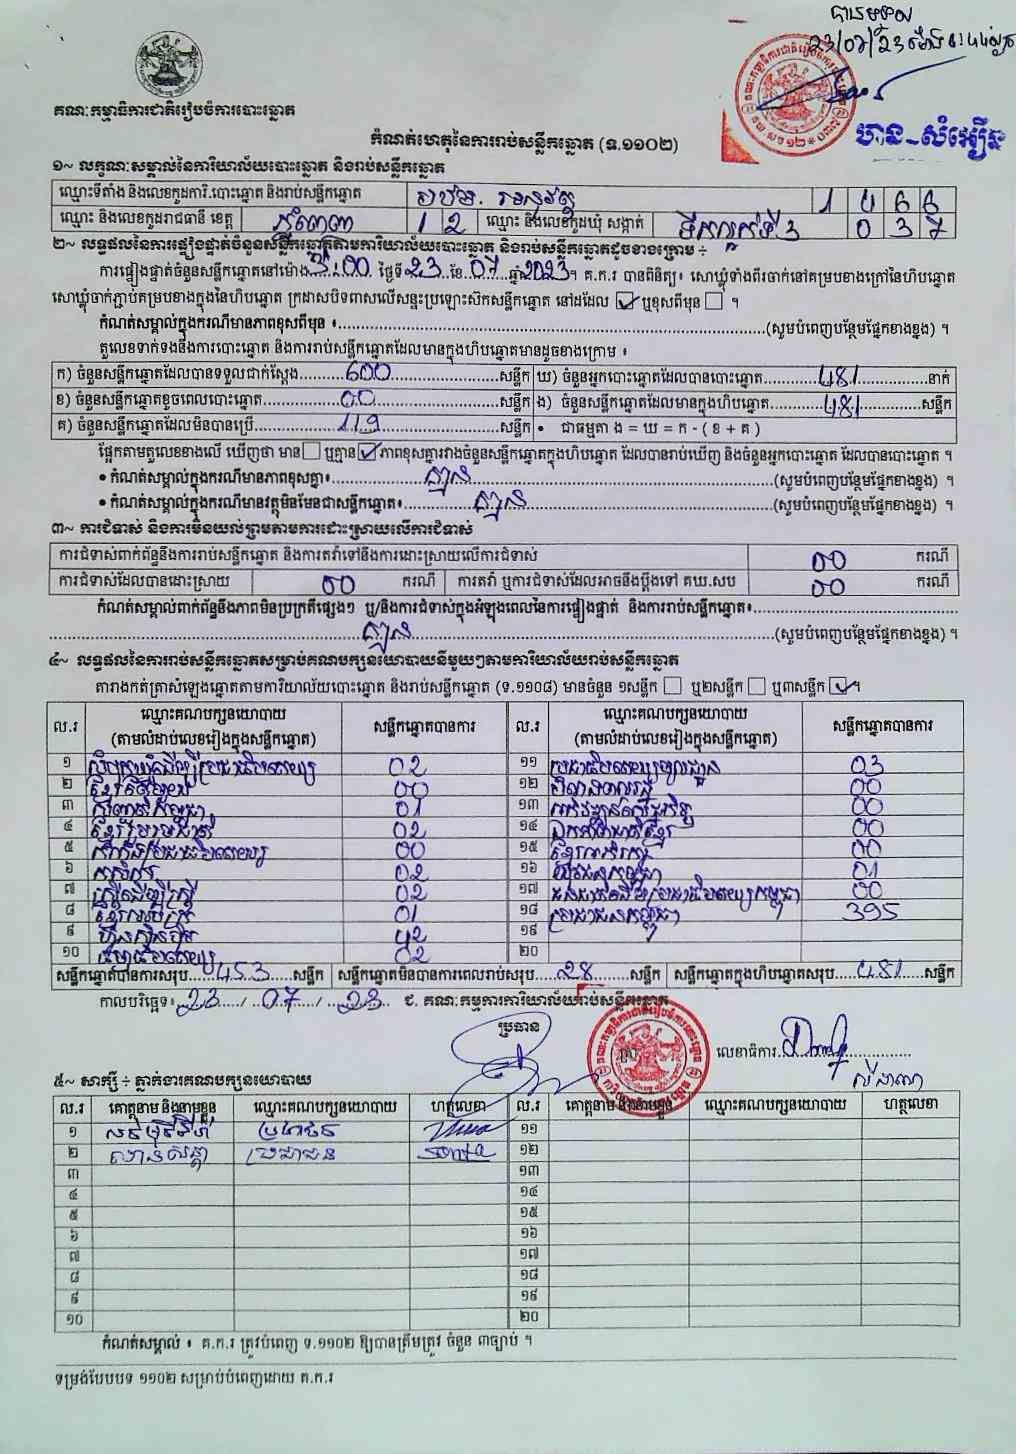 បានទទួល
23/07/23
គណៈកម្មាធិការជាតិរៀបចំការបោះឆ្នោត
ហាន-សំអឿន
កំណត់ហេតុនៃការរាប់សន្លឹកឆ្នោត (ទ.១១០២)
១~ លក្ខណៈសម្គាល់នៃការិយាល័យបោះឆ្នោត និងរាប់សន្លឹកឆ្នោត
ឈ្មោះទីតាំង និងលេខកូដការិ.បោះឆ្នោត និងរាប់សន្លឹកឆ្នោត 1466
ឈ្មោះ និងលេខកូដរាជធានី ខេត្ត ភ្នំពេញ 12 ឈ្មោះ និងលេខកូដឃុំ សង្កាត់ ទឹកល្អក់ទី3 037
២~ លទ្ធផលនៃការផ្ទៀងផ្ទាត់ចំនួនសន្លឹកឆ្នោតតាមការិយាល័យបោះឆ្នោត និងរាប់សន្លឹកឆ្នោតដូចខាងក្រោម ÷
ការផ្ទៀងផ្ទាត់ចំនួនសន្លឹកឆ្នោតនៅម៉ោង 3:00 ថ្ងៃទី 23 ខែ 07 ឆ្នាំ 2023។ គ.ក.រ បានពិនិត្យ៖ សោឃ្លុំទាំងពីរចាក់នៅគម្របខាងក្រៅនៃហិបឆ្នោត
សោឃ្លុំចាក់ភ្ជាប់គម្របខាងក្នុងនៃហិបឆ្នោត ក្រដាសបិទពាសលើសន្ទះប្រឡោះស៊កសន្លឹកឆ្នោត នៅដដែល ☑ ឬខុសពីមុន ☐ ។
កំណត់សម្គាល់ក្នុងករណីមានភាពខុសពីមុន ៖ (សូមបំពេញបន្ថែមផ្នែកខាងខ្នង) ។
តួលេខទាក់ទងនឹងការបោះឆ្នោត និងការរាប់សន្លឹកឆ្នោតដែលមានក្នុងហិបឆ្នោតមានដូចខាងក្រោម ៖
ក) ចំនួនសន្លឹកឆ្នោតដែលបានទទួលជាក់ស្តែង 600 សន្លឹក ឃ) ចំនួនអ្នកបោះឆ្នោតដែលបានបោះឆ្នោត 481 នាក់
ខ) ចំនួនសន្លឹកឆ្នោតខូចពេលបោះឆ្នោត 00 សន្លឹក ង) ចំនួនសន្លឹកឆ្នោតដែលមានក្នុងហិបឆ្នោត 481 សន្លឹក
គ) ចំនួនសន្លឹកឆ្នោតដែលមិនបានប្រើ 119 សន្លឹក • ជាធម្មតា ង = ឃ = ក - ( ខ + គ )
ផ្អែកតាមតួលេខខាងលើ ឃើញថា មាន ☐ ឬគ្មាន ☑ ភាពខុសគ្នារវាងចំនួនសន្លឹកឆ្នោតក្នុងហិបឆ្នោត ដែលបានរាប់ឃើញ និងចំនួនអ្នកបោះឆ្នោត ដែលបានបោះឆ្នោត ។
• កំណត់សម្គាល់ក្នុងករណីមានភាពខុសគ្នា៖ គ្មាន (សូមបំពេញបន្ថែមផ្នែកខាងខ្នង) ។
• កំណត់សម្គាល់ក្នុងករណីមានវត្ថុមិនមែនជាសន្លឹកឆ្នោត៖ គ្មាន (សូមបំពេញបន្ថែមផ្នែកខាងខ្នង) ។
៣~ ការជំទាស់ និងការមិនយល់ព្រមតាមការដោះស្រាយលើការជំទាស់
ការជំទាស់ពាក់ព័ន្ធនឹងការរាប់សន្លឹកឆ្នោត និងការតវ៉ាទៅនឹងការដោះស្រាយលើការជំទាស់ 00 ករណី
ការជំទាស់ដែលបានដោះស្រាយ 00 ករណី ការតវ៉ា ឬការជំទាស់ដែលអាចនឹងប្តឹងទៅ គឃ.សប 00 ករណី
កំណត់សម្គាល់ពាក់ព័ន្ធនឹងភាពមិនប្រក្រតីផ្សេងៗ ឬ/និងការជំទាស់ក្នុងអំឡុងពេលនៃការផ្ទៀងផ្ទាត់ និងការរាប់សន្លឹកឆ្នោត៖
គ្មាន (សូមបំពេញបន្ថែមផ្នែកខាងខ្នង) ។
៤~ លទ្ធផលនៃការរាប់សន្លឹកឆ្នោតសម្រាប់គណបក្សនយោបាយនីមួយៗតាមការិយាល័យរាប់សន្លឹកឆ្នោត
តារាងកត់ត្រាសំឡេងឆ្នោតតាមការិយាល័យបោះឆ្នោត និងរាប់សន្លឹកឆ្នោត (ទ.១១០៨) មានចំនួន ១សន្លឹក ☐ ឬ២សន្លឹក ☐ ឬ៣សន្លឹក ☑។
ល.រ ឈ្មោះគណបក្សនយោបាយ (តាមលំដាប់លេខរៀងក្នុងសន្លឹកឆ្នោត) សន្លឹកឆ្នោតបានការ ល.រ ឈ្មោះគណបក្សនយោបាយ (តាមលំដាប់លេខរៀងក្នុងសន្លឹកឆ្នោត) សន្លឹកឆ្នោតបានការ
១ 02 ១១ ប្រជាធិបតេយ្យមូលដ្ឋាន 03
២ 00 ១២ 00
៣ 01 ១៣ 00
៤ 02 ១៤ ឯកភាពជាតិខ្មែរ 00
៥ 00 ១៥ 00
៦ កសិករ 02 ១៦ យុវជនកម្ពុជា 01
៧ ស្ត្រីដើម្បីស្ត្រី 02 ១៧ ជនជាតិដើមប្រជាធិបតេយ្យកម្ពុជា 00
៨ 01 ១៨ ប្រជាជនកម្ពុជា 395
៩ ហ៊្វុនស៊ិនប៉ិច 42 ១៩
១០ 02 ២០
សន្លឹកឆ្នោតបានការសរុប 453 សន្លឹក សន្លឹកឆ្នោតមិនបានការពេលរាប់សរុប 28 សន្លឹក សន្លឹកឆ្នោតក្នុងហិបឆ្នោតសរុប 481 សន្លឹក
កាលបរិច្ឆេទ៖ 23 / 07 / 23 ជ. គណៈកម្មការការិយាល័យរាប់សន្លឹកឆ្នោត
ប្រធាន
លេខាធិការ
៥~ សាក្សី ÷ ភ្នាក់ងារគណបក្សនយោបាយ
ល.រ គោត្តនាម និងនាមខ្លួន ឈ្មោះគណបក្សនយោបាយ ហត្ថលេខា ល.រ គោត្តនាម និងនាមខ្លួន ឈ្មោះគណបក្សនយោបាយ ហត្ថលេខា
១ ប្រជាជន ១១
២ ប្រជាជន ១២
៣ ១៣
៤ ១៤
៥ ១៥
៦ ១៦
៧ ១៧
៨ ១៨
៩ ១៩
១០ ២០
កំណត់សម្គាល់ ៖ គ.ក.រ ត្រូវបំពេញ ទ.១១០២ ឱ្យបានត្រឹមត្រូវ ចំនួន ៣ច្បាប់ ។
ទម្រង់បែបបទ ១១០២ សម្រាប់បំពេញដោយ គ.ក.រ